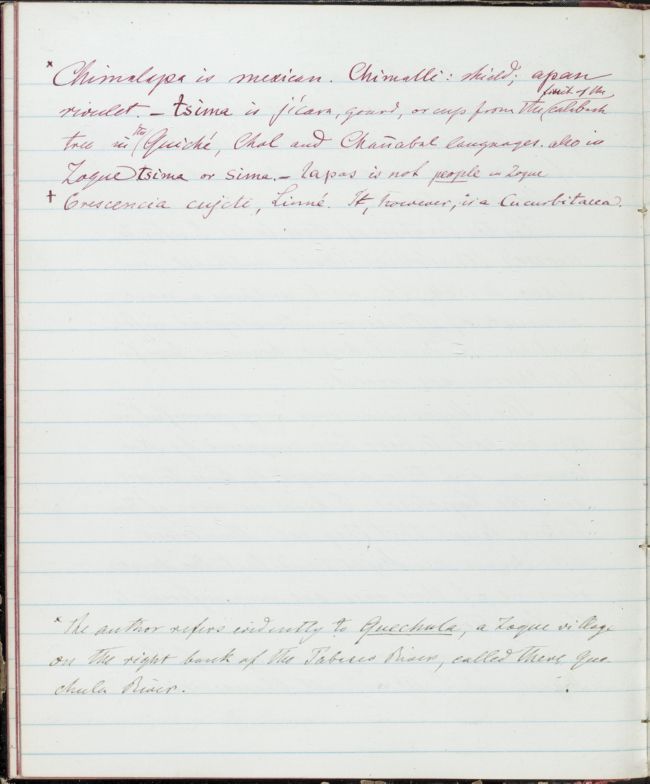 * Chimalapa is mexican. Chimalli: shield; apan
rivulet. — tsima is jícara, gourd, or cup from the fruit of the calabash
tree in the Quiché, Chol and Chañabal languages. also in
Zoque tsima or sima. — lapas is not people in Zoque
† Crescencia cujete, Linné. It, however, is a Cucurbitacea.
* The author refers evidently to Quechula, a Zoque village
on the right bank of the Tabasco River, called there Que-
chula River.